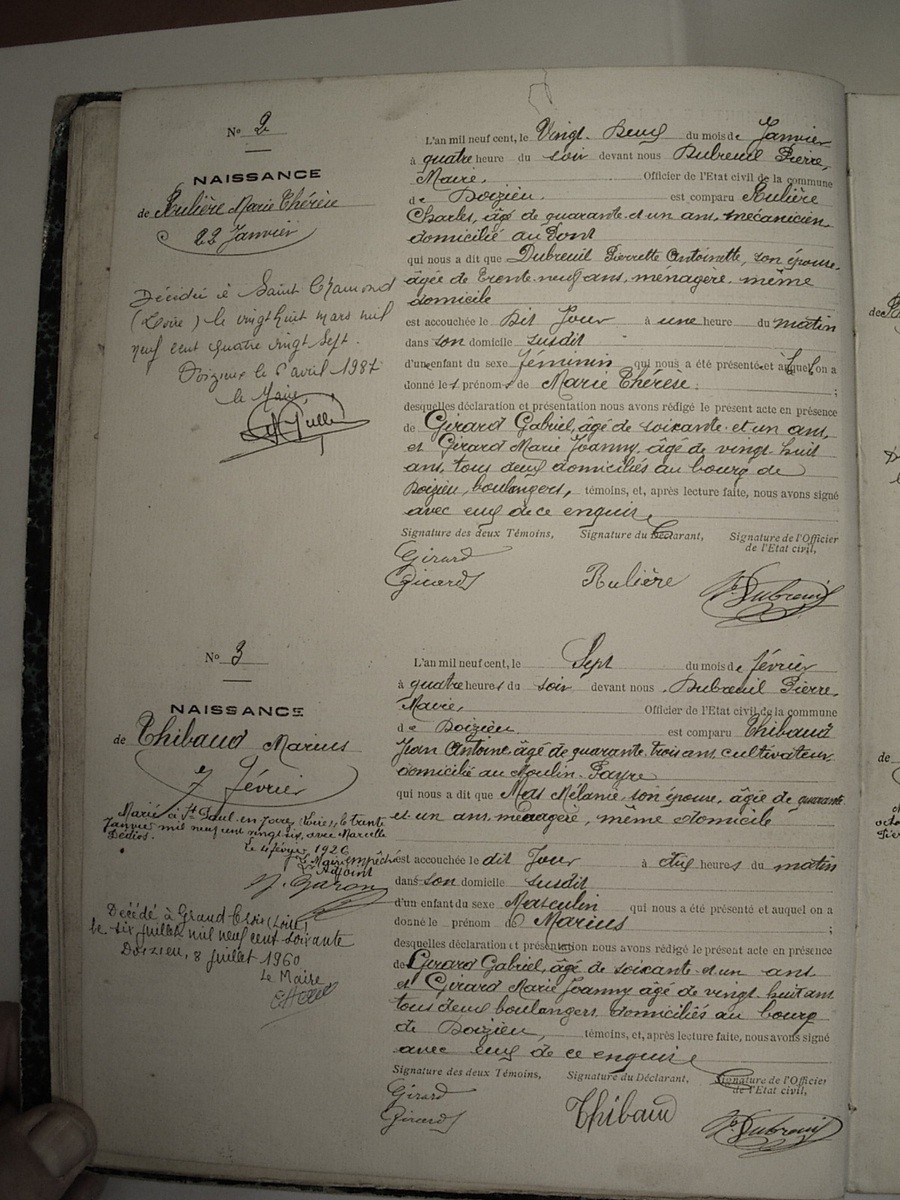 N° 2
NAISSANCE
de Rulière Marie Thérèse
22 Janvier
Décédée à Saint Chamond
(Loire) le vingt huit mars mil
neuf cent quatre vingt sept.
Doizieux le 6 avril 1987
le Maire
L'an mil neuf cent, le Vingt-Deux du mois de Janvier
à quatre heure du soir devant nous Dubreuil Pierre,
Maire, Officier de l'Etat civil de la commune
de Doizieu est comparu Rulière
Charles, âgé de quarante et un ans, mécanicien,
domicilié au Pont
qui nous a dit que Dubreuil Pierrette Antoinette, son épouse,
âgée de trente-neuf ans, ménagère, même
domicile
est accouchée le Dit Jour à une heure du matin
dans son domicile susdit
d'un enfant du sexe féminin qui nous a été présenté et auquel on a
donné les prénoms de Marie Thérèse ;
desquelles déclaration et présentation nous avons rédigé le présent acte en présence
de Girard Gabriel, âgé de soixante et un ans,
et Girard Marie Joanny, âgé de vingt-huit
ans, tous deux domiciliés au bourg de
Doizieu, boulangers, témoins, et, après lecture faite, nous avons signé
avec eux de ce enquis
Signature des deux Témoins, Signature du Déclarant, Signature de l'Officier
de l'Etat civil,
Girard
Girard Rulière P. Dubreuil
N° 3
NAISSANCE
de Thibaud Marius
7 février
Marié à St Paul-en-Jarez (Loire) le trente
Janvier mil neuf cent vingt six, avec Marcelle
le 4 février 1926
Pr le Maire empêché
L'Adjoint
Décédé à Grand-Croix (Loire)
le six juillet mil neuf cent soixante
Doizieu, 8 juillet 1960
Le Maire
L'an mil neuf cent, le Sept du mois de février
à quatre heures du soir devant nous Dubreuil Pierre,
Maire, Officier de l'Etat civil de la commune
de Doizieu est comparu Thibaud
Jean Antoine âgé de quarante-trois ans, cultivateur,
domicilié au Moulin-Payre
qui nous a dit que Mélanie, son épouse, âgée de quarante
et un ans, ménagère, même domicile
est accouchée le dit Jour à dix heures du matin
dans son domicile susdit
d'un enfant du sexe Masculin qui nous a été présenté et auquel on a
donné le prénom de Marius ;
desquelles déclaration et présentation nous avons rédigé le présent acte en présence
de Girard Gabriel, âgé de soixante et un ans
et Girard Marie Joanny âgé de vingt-huit ans
tous deux boulangers, domiciliés au bourg
de Doizieu, témoins, et, après lecture faite, nous avons signé
avec eux de ce enquis
Signature des deux Témoins, Signature du Déclarant, Signature de l'Officier
de l'Etat civil,
Girard
Girard Thibaud P. Dubreuil